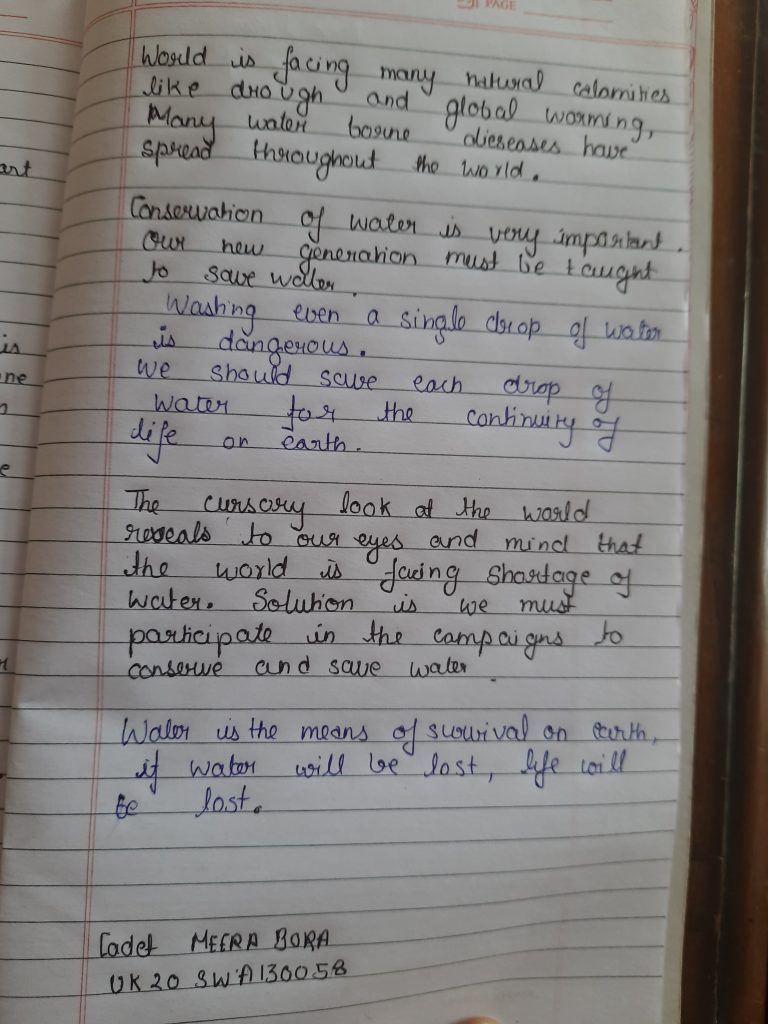 PAGE
World is facing many natural calamities
like drough and global worming,
Many water borne dieseases have
spread throughout the world.
Conservation of water is very important.
Our new generation must be taught
to save water.
Washing even a single drop of water
is dangerous.
we should save each drop of
water for the continuity of
life on earth.
The cursory look at the world
reveals to our eyes and mind that
the world is facing shortage of
water. Solution is we must
participate in the campaigns to
conserve and save water.
Water is the means of survival on earth,
if water will be lost, life will
be lost.
Cadet MEERA BORA
UK20 SWA130058